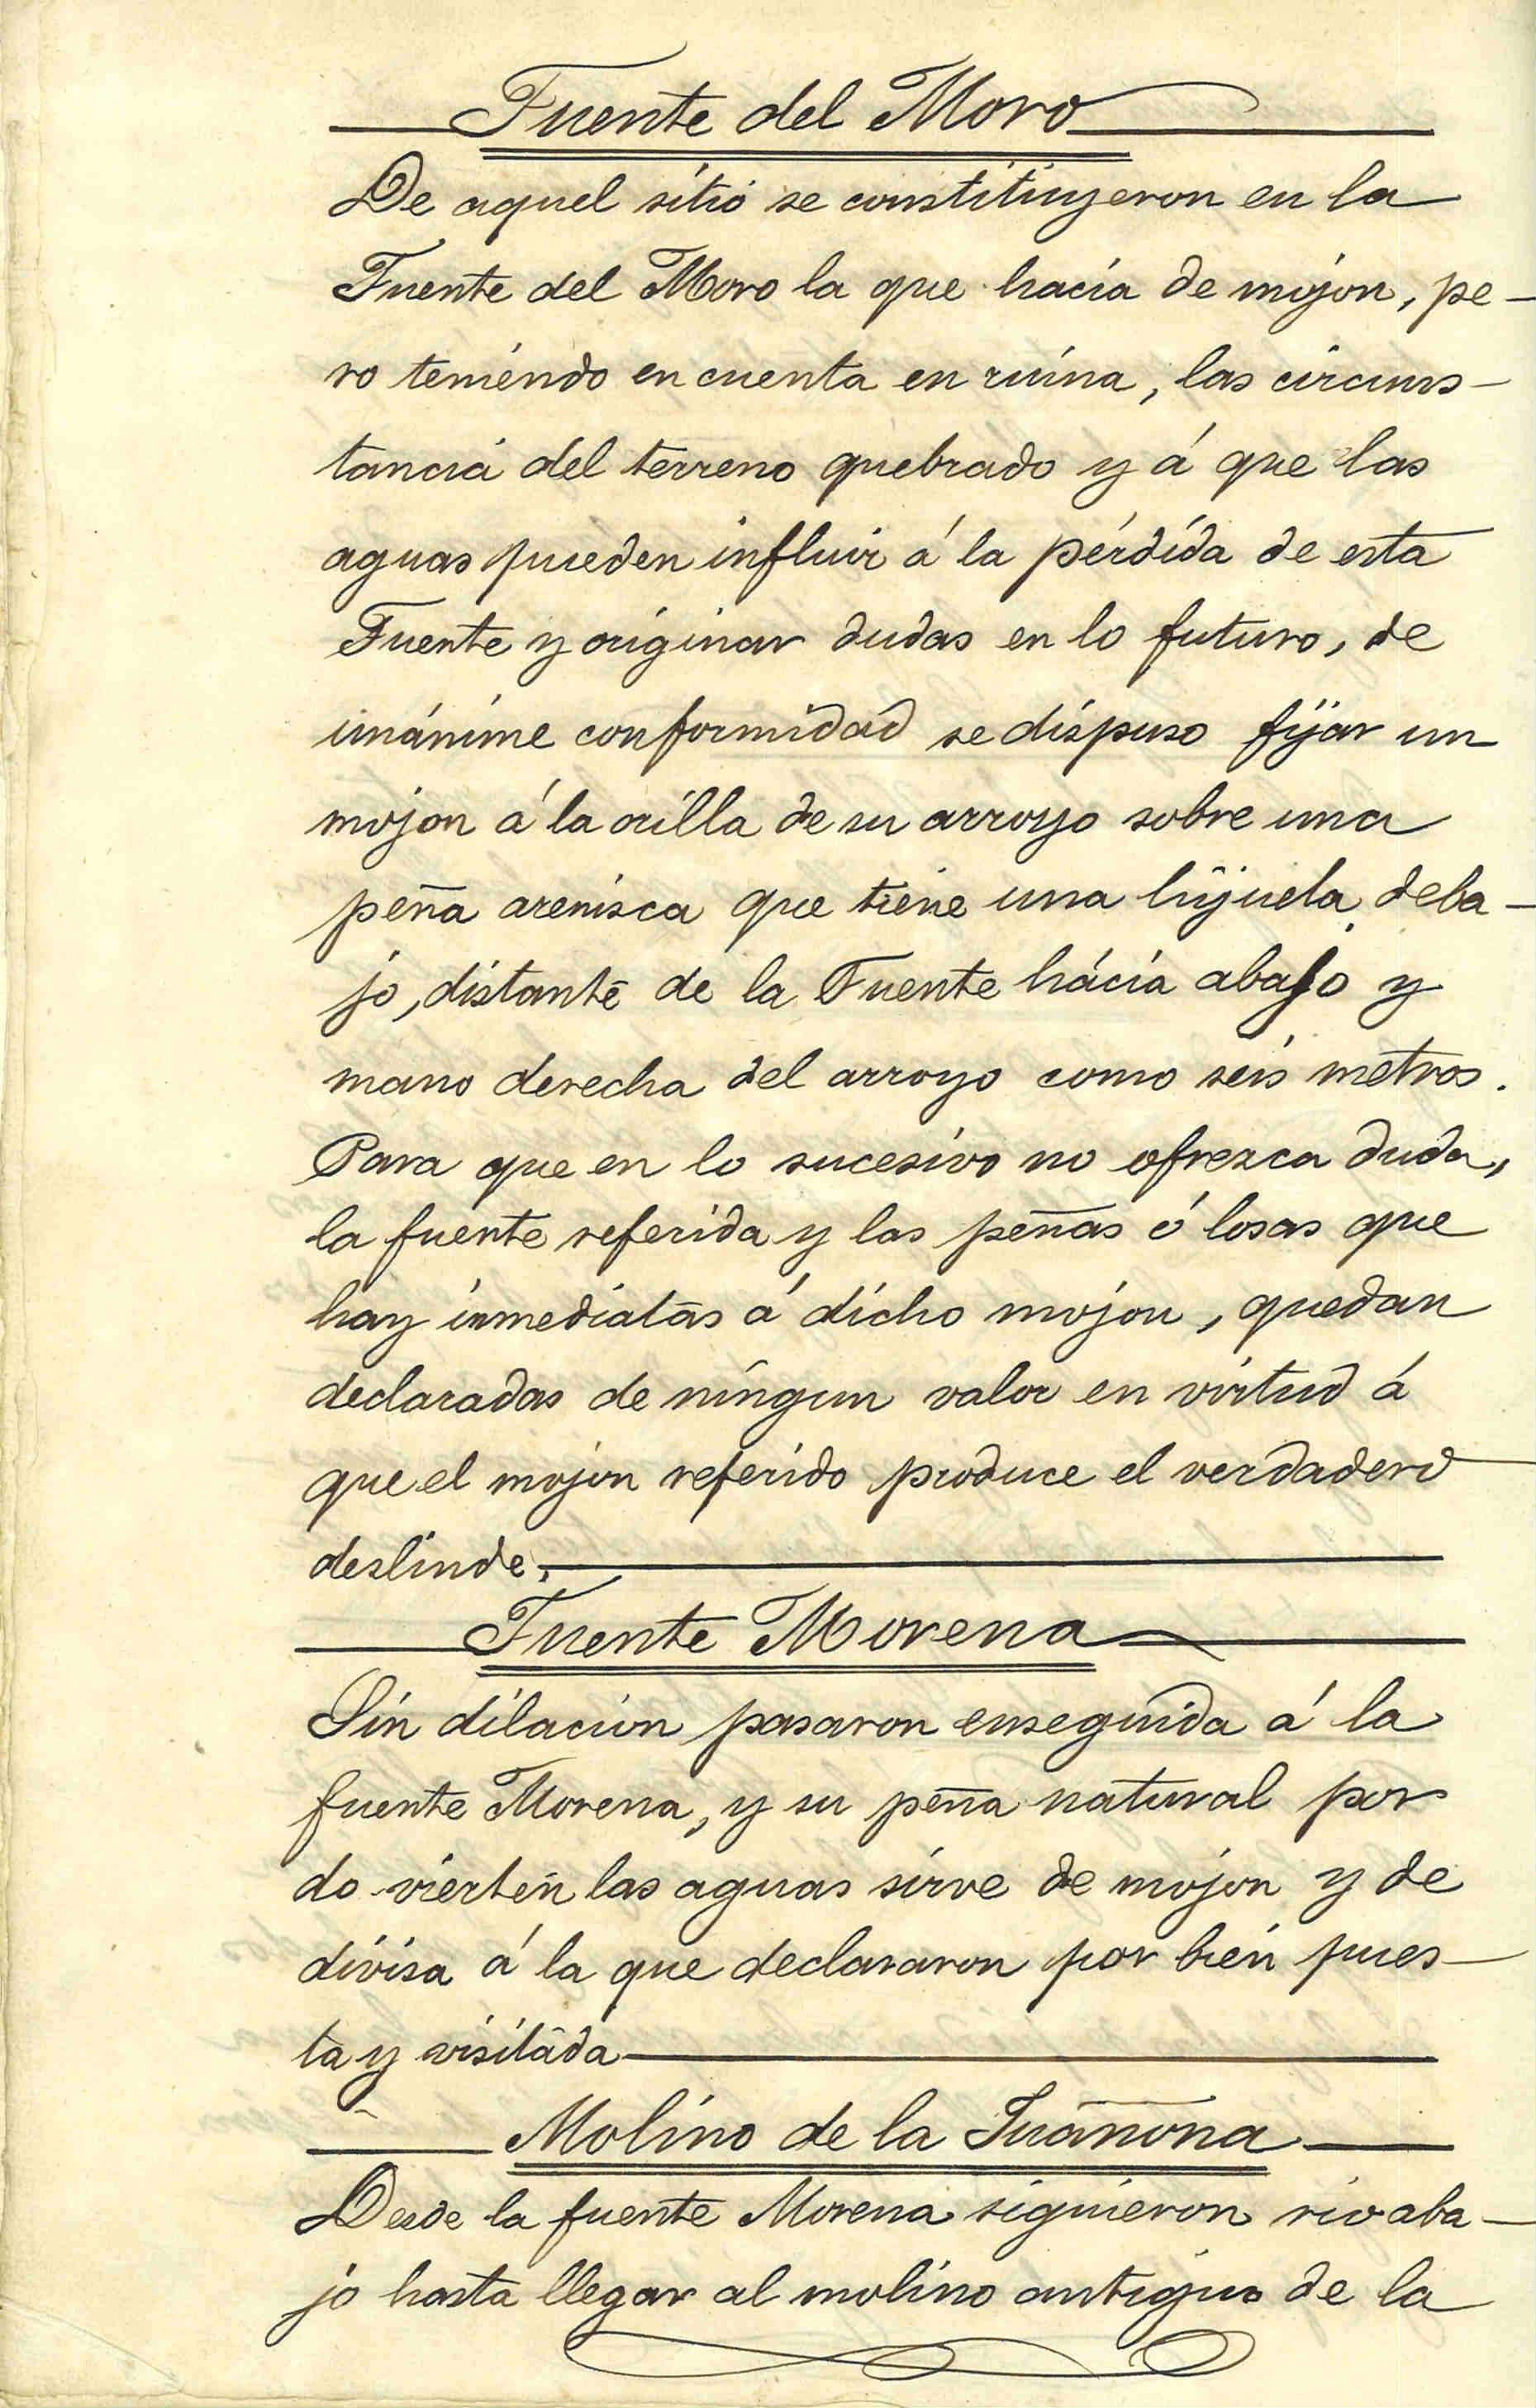 Fuente del Moro
De aquel sitio se constituyeron en la
Fuente del Moro la que hacia de mojon, pe-
ro teniendo en cuenta en ruina, las circuns-
tancia del terreno quebrado y á que las
aguas pueden influir á la pérdida de esta
Fuente y originar dudas en lo futuro, de
unánime conformidad se dispuso fijar un
mojon á la orilla de su arroyo sobre una
peña arenisca que tiene una hijuela deba-
jo, distante de la Fuente hácia abajo y
mano derecha del arroyo como seis metros.
Para que en lo sucesivo no ofrezca duda,
la fuente referida y las peñas ó losas que
hay inmediatas á dicho mojon, quedan
declaradas de ningun valor en virtud á
que el mojon referido produce el verdadero
deslinde.
Fuente Morena
Sin dilacion pasaron enseguida á la
fuente Morena, y su peña natural por
do vierten las aguas sirve de mojon y de
divisa á la que declararon por bien pues-
ta y visitada
Molino de la Juañona
Desde la fuente Morena siguieron rio aba-
jo hasta llegar al molino antiguo de la